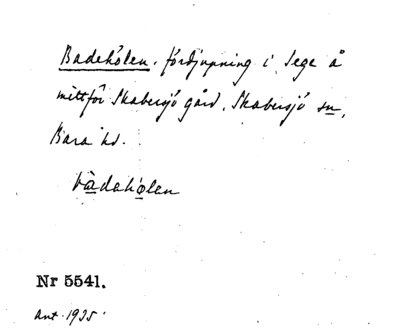 Badehölen, fördjupning i Sege å
mittför Skabersjö gård, Skabersjö sn,
Bara hd.
bàdahǿlan
Nr 5541.
Ant. 1935.